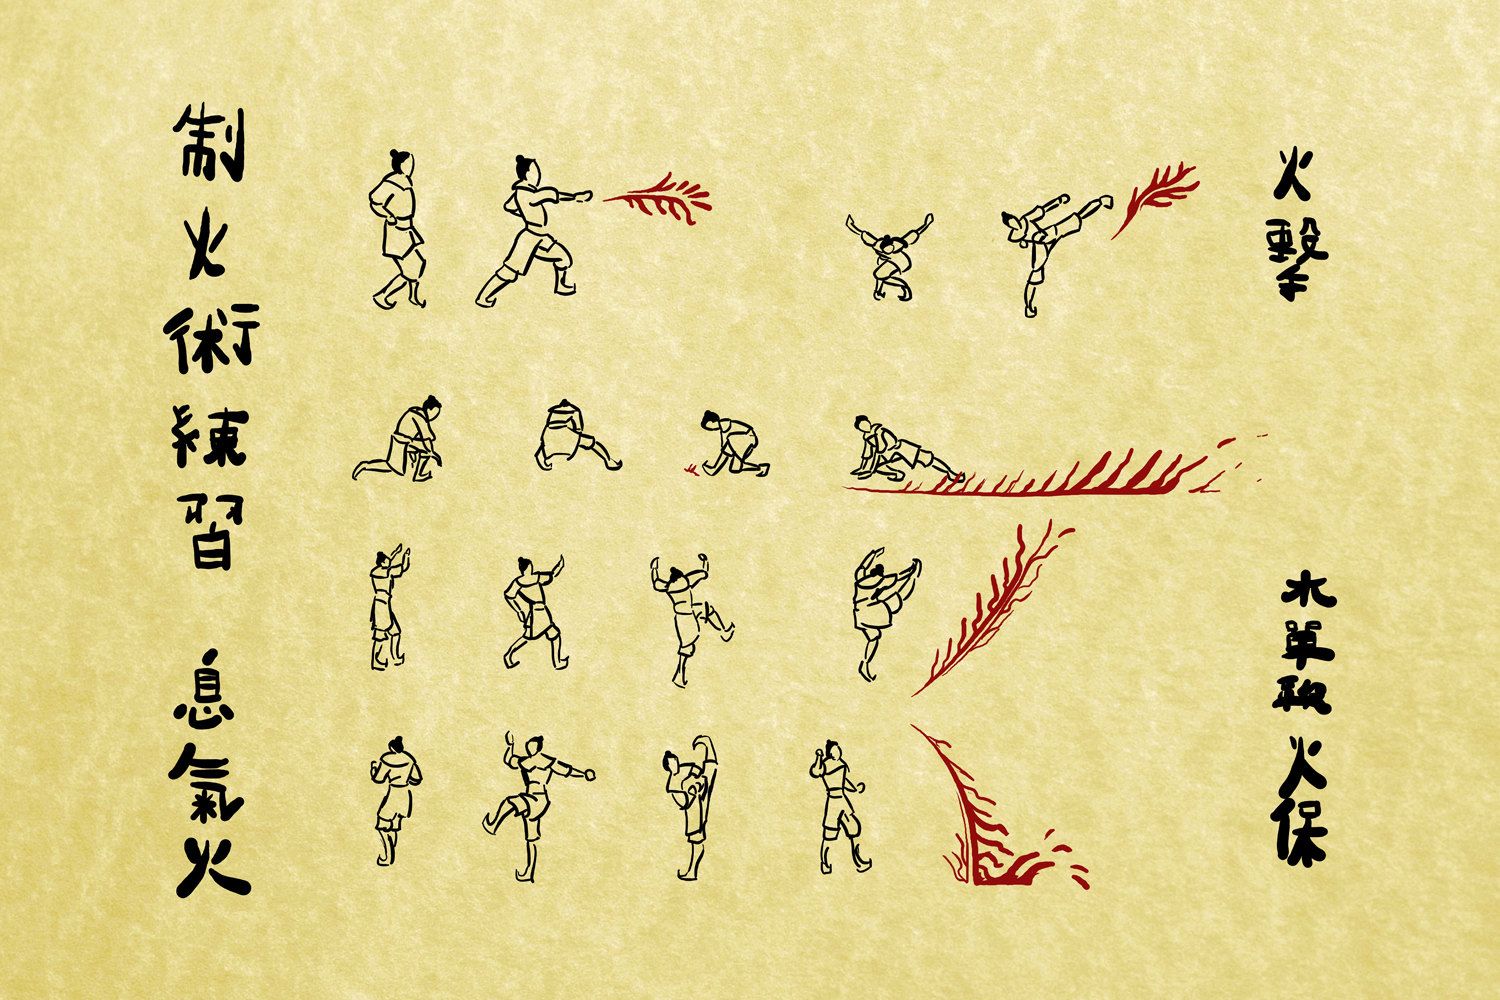 制火術練習 息氣火
火擊
水單火保